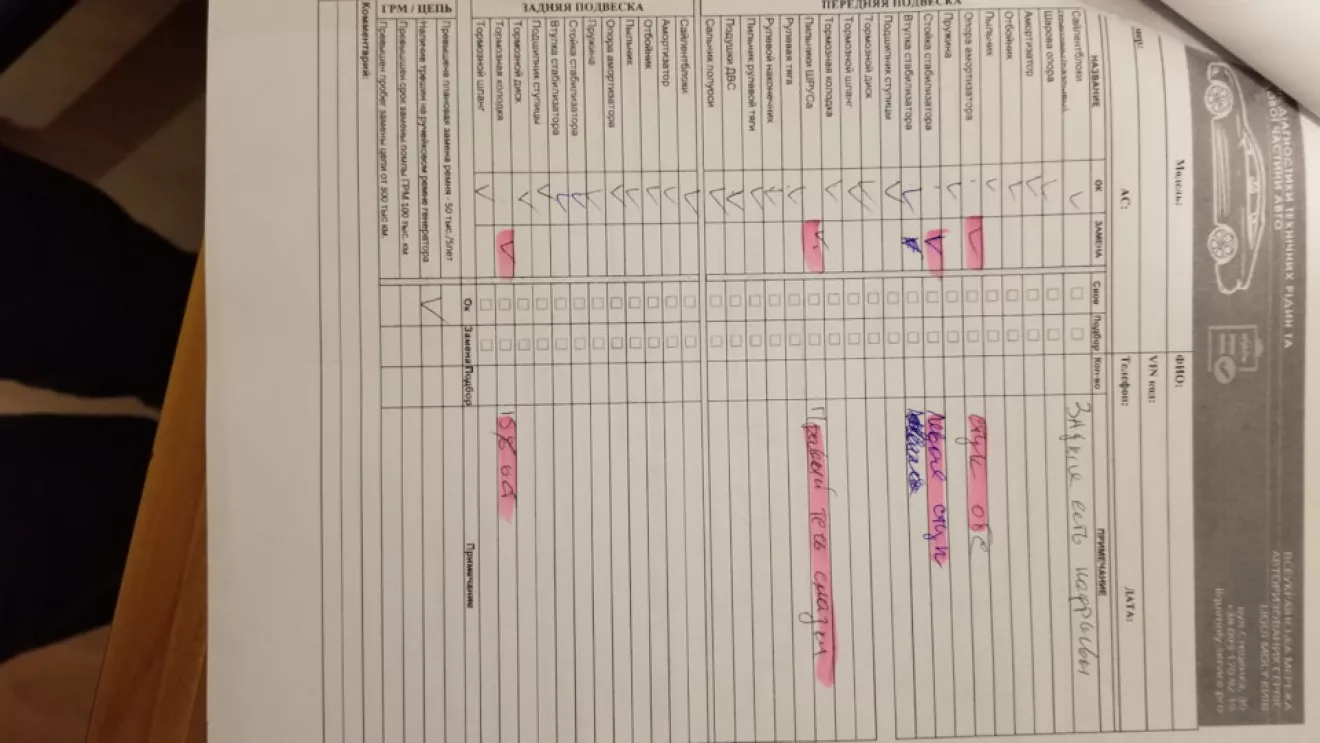 ДІАГНОСТИКИ ТЕХНІЧНИХ РІДИН ТА
ЧАСТИНИ АВТО
ВСЕУКРАЇНСЬКА МЕРЕЖА
АВТОРИЗОВАНИЙ СЕРВІС
LIQUI MOLY КИЇВ
Модель:
ФИО:
VIN код:
АС:
Телефон:
ДАТА:
НАЗВАНИЕ ОК ЗАМЕНА Снов Подбор Кол-во ПРИМЕЧАНИЕ
ПЕРЕДНЯЯ ПОДВЕСКА
Сайлентблоки Задние есть надрывы
Шарова опора
Амортизатор
Отбойник
Пыльник
Опора амортизатора стук обе
Пружина
Стойка стабилизатора левые стук
Втулка стабилизатора
Подшипник ступицы
Тормозной диск
Тормозной шланг
Тормозная колодка
Пыльники ШРУСа Правый течь смазки
Рулевая тяга
Рулевой наконечник
Пыльник рулевой тяги
Подушки ДВС
Сальник полуоси
ЗАДНЯЯ ПОДВЕСКА
Сайлентблоки
Амортизатор
Отбойник
Пыльник
Опора амортизатора
Пружина
Стойка стабилизатора
Втулка стабилизатора
Подшипник ступицы
Тормозной диск
Тормозная колодка
Тормозной шланг
ГРМ / ЦЕПЬ Ок Замена Подбор Примечание
Превышена плановая замена ремня - 50 тыс./5лет
Наличие трещин на ручейковом ремне генератора
Превышен срок замены помпы ГРМ 100 тыс. км
Превышен пробег замены цепи от 300 тыс км.
Комментарий: